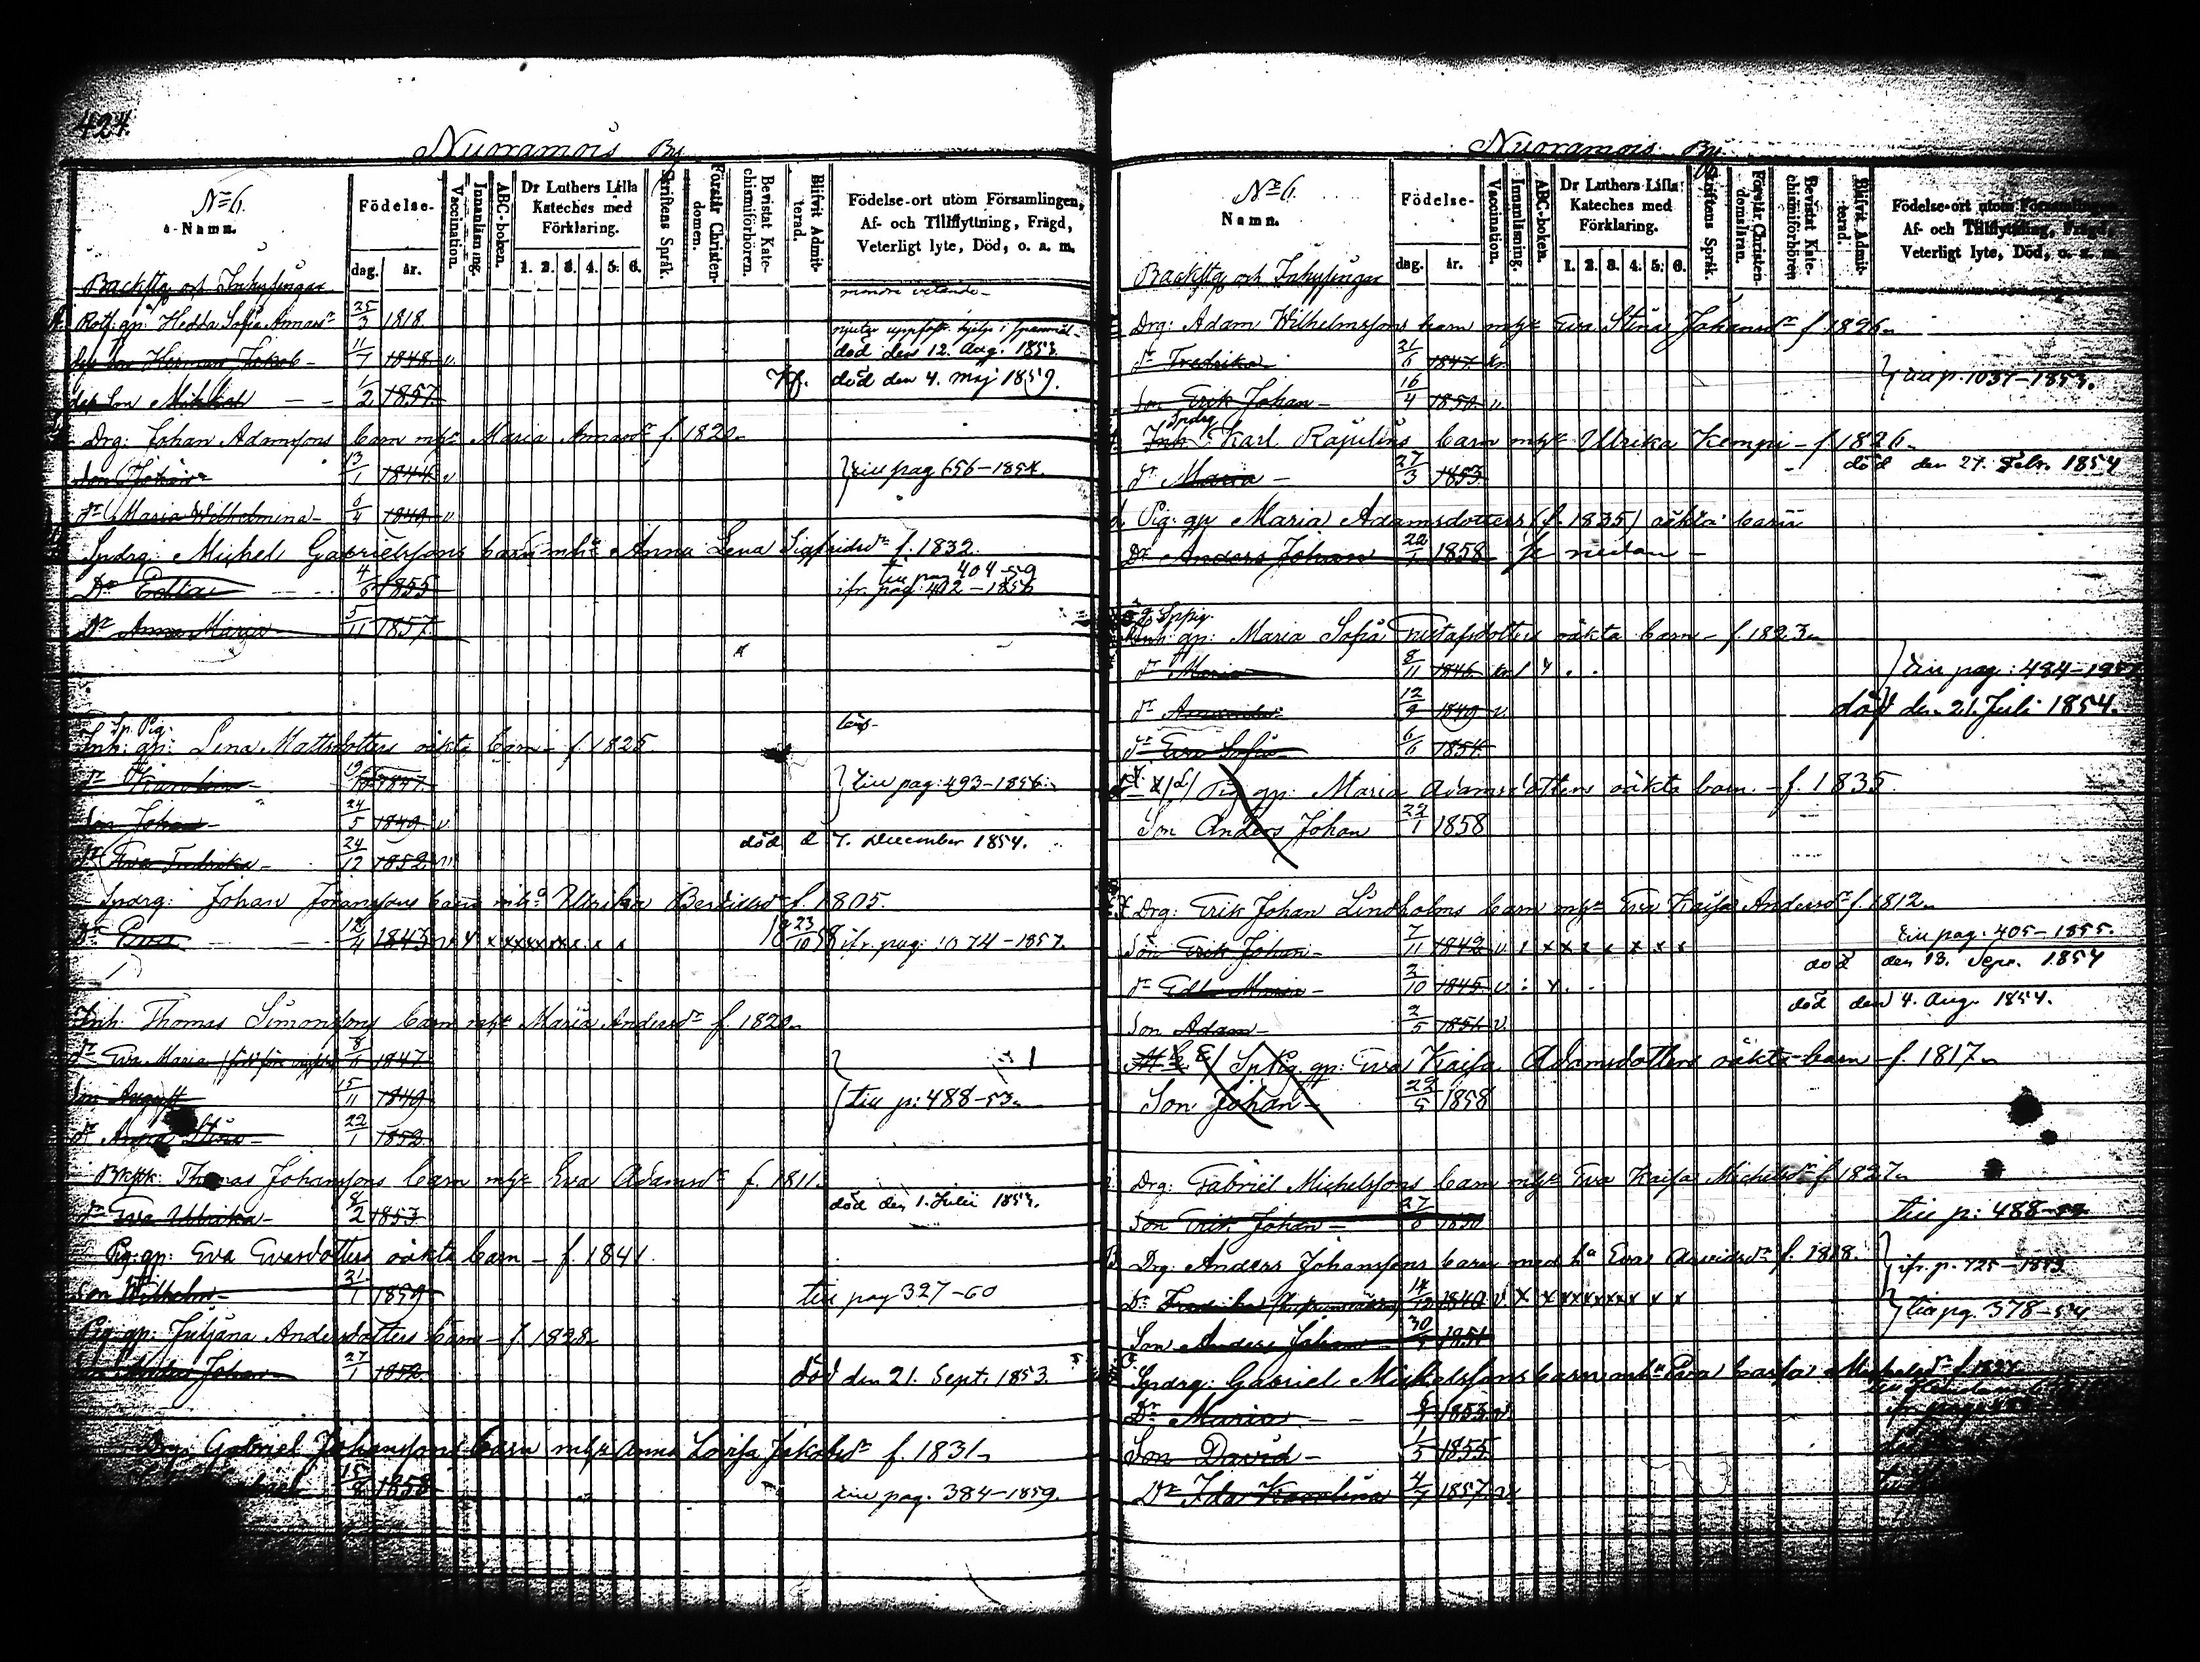 424.
Nuoramois By
No 6.
Namn.
Födelse-
dag. år.
Vaccination.
Innanläsning.
ABC-boken.
Dr Luthers Lilla Kateches med Förklaring.
1. 2. 3. 4. 5. 6.
Skriftens Språk.
Förstår Christendomen.
Bevistat Katechismiförhören.
Blifvit Admitterad.
Födelse-ort utom Församlingen, Af- och Tillflyttning, Frägd, Veterligt lyte, Död, o. a. m.
Backstug och Inhysingar
mindre vetande
Rotf. gp: Hedda Sofia Annasdr 25/3 1818.
Herman Jakob 11/7 1848 v. död den 12. Aug. 1853.
Son Mikkel 1/2 1857 död den 4. Maj 1859.
Drg: Johan Adamssons barn mhu Maria Annasdr f. 1820
Son Johan 13/1 1844 v
dr Maria Wilhelmina 6/4 1849 v
till pag 656-1854.
Spdrg: Michel Gabrielssons barn mhu Anna Lena Sigfridsdr f. 1832.
till pag 404-59
Dr Edla 4/6 1855 ifr. pag: 402-1856
Dr Anna Maria 5/11 1857
Sp. Pig.
Inh: gp: Lena Mattsdotters oäkta barn f. 1825
dr Karolina 19/10 1847
till pag: 493-1856.
Son Johan 24/5 1849 v
dr Eva Fredrika 24/12 1852 död d 7. December 1854.
Spdrg: Johan Johanssons barn mha Ulrika Bertilsdr f. 1805.
Dr Eva 12/4 1843 v x x x x x x x x x x 23/10 58 ifr. pag: 1074-1857.
Inh: Thomas Simonssons barn mhu Maria Andersdr f. 1820
dr Eva Maria 8/6 1847
Son August 15/11 1849
till p: 488-53.
dr Anna Stina 22/1 1852
Thomas Johanssons barn mhu Eva Adamsdr f. 1811.
dr Eva Ulrika 8/2 1853 död den 1. Julii 1853.
Pig: gp: Eva Evasdotters oäkta barn f. 1841.
Son Wilhelm 21/1 1859 till pag 327-60
Pig. gp: Juljana Andersdotters barn f. 1828
Son Anders Johan 27/1 1852 död den 21. Sept. 1853.
Drg: Gabriel Johanssons barn mhu Anna Lovisa Jakobsdr f. 1831
15/8 1858 till pag. 384-1859.
Nuoramois By
No 6.
Namn.
Födelse-
dag. år.
Vaccination.
Innanläsning.
ABC-boken.
Dr Luthers Lilla Kateches med Förklaring.
1. 2. 3. 4. 5. 6.
Skriftens Språk.
Förstår Christendomsläran.
Bevistat Katechismiförhören
Blifvit Admitterad.
Födelse-ort utom Församlingen, Af- och Tillflyttning, Frägd, Veterligt lyte, Död, o. a. m.
Backstug och Inhysingar
Drg: Adam Wilhelmssons barn mhu Eva Stina Johansdr f 1826
dr Fredrika 21/6 1847
till p. 1037-1853.
Son Erik Johan 16/4 1850 v.
Spdrg
Inh: Karl Rapelius barn mhu Ulrika Kempi f 1826
dr Maria 27/3 1853 död den 27. Febr. 1854
Pig: gp Maria Adamsdotters (f. 1835) oäkta barn
Dr Anders Johan 22/1 1858 se nedan
Sppig.
Inh: gp: Maria Sofia Gustafsdotters oäkta barn f. 1823
dr Maria 8/11 1846
till pag: 484-
dr 12/9 1849 v. död den 21 Juli 1854.
dr Eva Sofia 6/6 1854
Pig gp: Maria Adamsdotters oäkta barn f. 1835
Son Anders Johan 22/1 1858
Drg: Erik Johan Lindholms barn mhu Eva Kaisa Andersdr f. 1812
Son Erik Johan 7/11 1842 v x x x x x x x x till pag. 405-1855.
dr Edla Maria 2/10 1845 v död den 13. Sept. 1854
Son Adam 2/5 1851 v död den 4. Aug. 1854.
SpPig. gp: Eva Kaisa Adamsdotters oäkta barn f. 1817
Son Johan 22/5 1858
Drg: Gabriel Michelssons barn mhu Eva Kaisa Michelsdr f 1827
Son Erik Johan 27/8 1850 till p: 488-
Drg: Anders Johanssons barn med ha Eva Arvidsdr f. 1818.
ifr. p. 725-1853
Dr Fredrika 14/12 1840 v x x x x x x x x x x
till pg. 378-54
Son Anders Johan 30/ 1851
Spdrg: Gabriel Michelssons barn mha Eva Caisa Michelsdr f 1827
Dr Maria 1853 v
Son David 1/5 1855
Dr Ida Karolina 4/7 1857 v